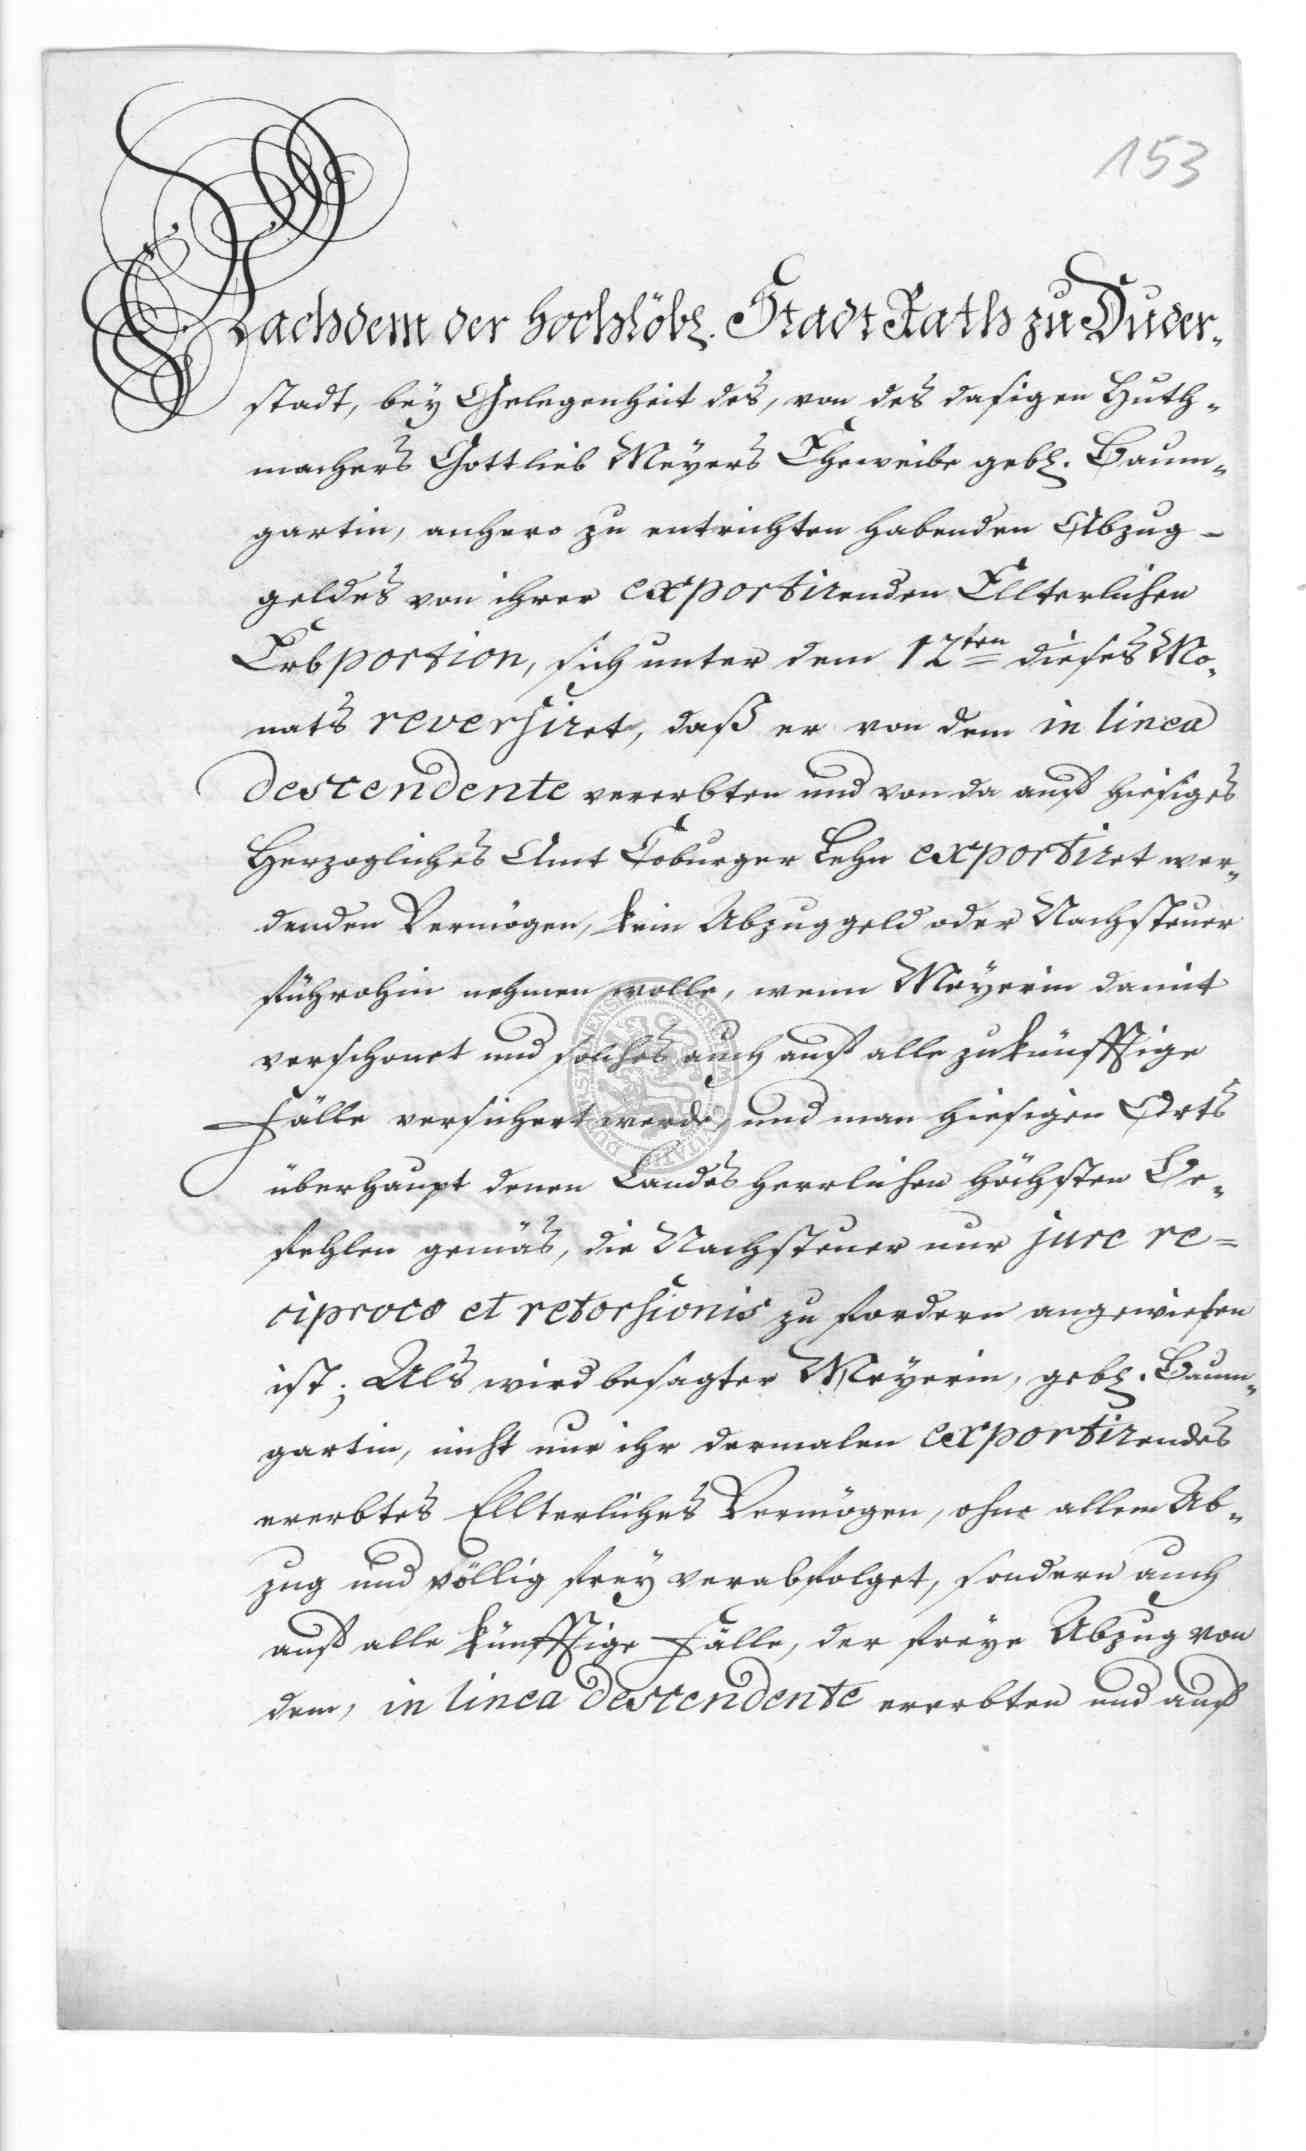 153
Nachdem der hochlöbl. Stadt Rath zu Duder-
stadt, bey Gelegenheit des, von des dasigen Huth-
machers Gottlieb Meyers Eheweibe gebl. Baum-
gartin, anhero zu entrichten habenden Abzug-
geldes von ihrer exportirenden Ellterlichen
Erbportion, sich unter dem 12ten dieses Mo-
nats reversiret, daß er von dem in linea
descendente vererbten und von da auf hiesiges
Herzogliches Amt Coburger Lehn exportiret wer-
denden Vermögen, kein Abzuggeld oder Nachsteuer
führohin nehmen wolle, wenn Meyerin damit
verschonet und solches auch auf alle zukünfftige
Fälle versichert werde, und man hiesigen Orts
überhaupt denen Landesherrlichen höchsten Be-
fehlen gemäs, die Nachsteuer nur jure re-
ciproco et retorsionis zu fordern angewiesen
ist; Als wird besagter Meyerin, gebl. Baum-
gartin, nicht nur ihr dermalen exportirendes
ererbtes Ellterliches Vermögen, ohne allem Ab-
zug und völlig frey verabfolget, sondern auch
auf alle künfftige Fälle, der freye Abzug von
dem, in linea descendente ererbten und auf